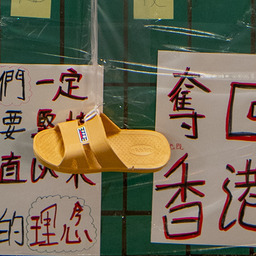 們一定
要堅
直
的理念
奪回
香港